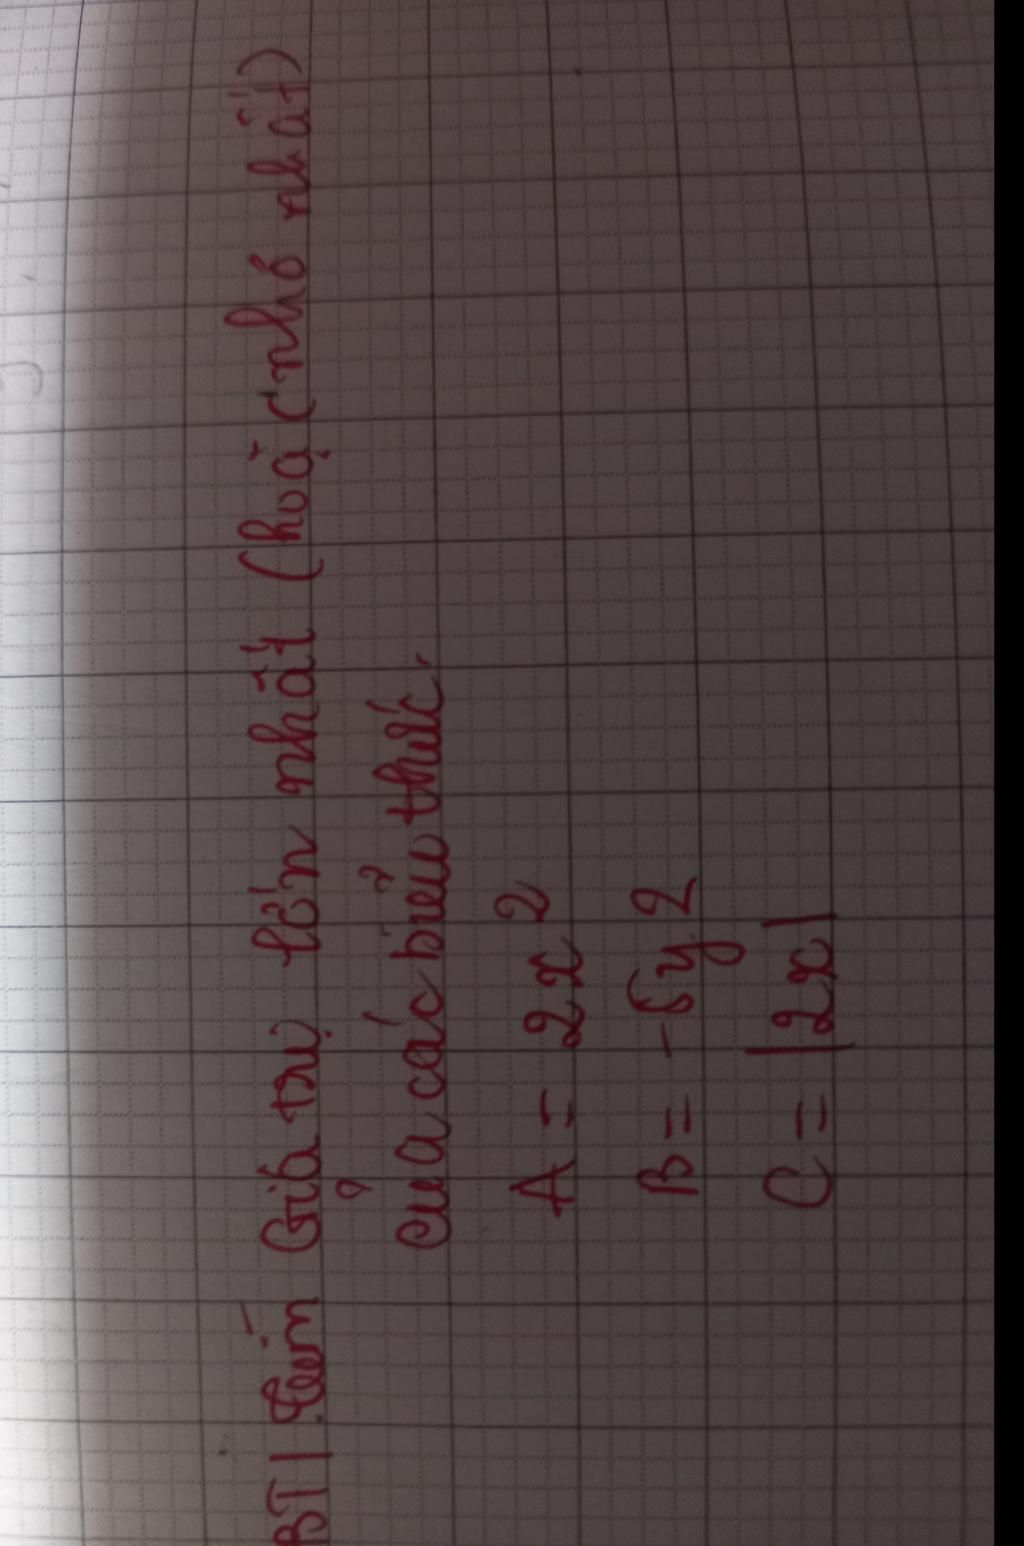 BT1. Tìm Giá trị lớn nhất (hoặc nhỏ nhất)
của các biểu thức.
A = 2x²
B = -5y²
C = |2x|